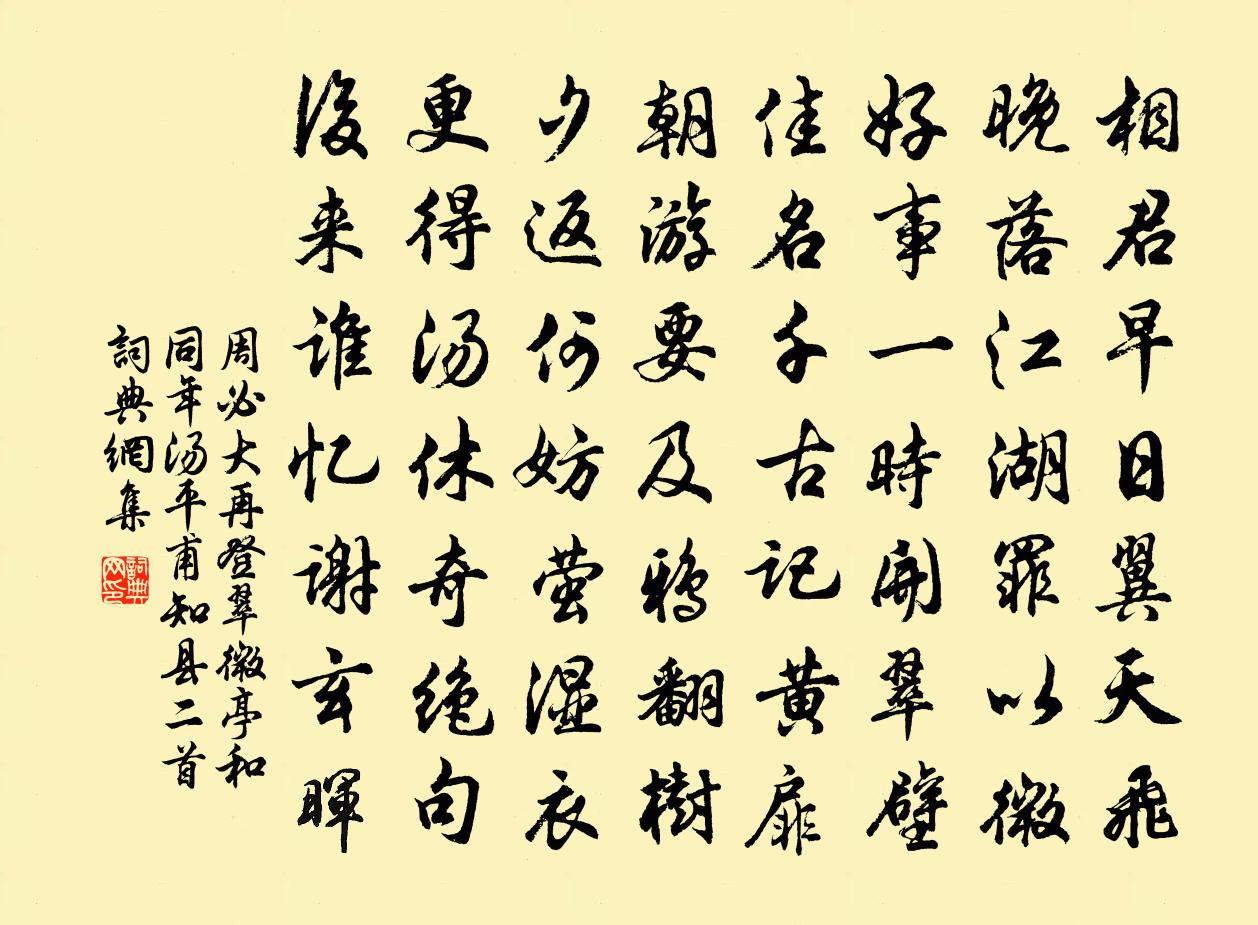 相君早日翼天飛
晚落江湖罪以微
好事一時開翠壁
佳名千古記黄扉
朝游要及鴉翻樹
夕返何妨萤濕衣
更得汤休奇绝句
後来谁忆謝玄暉
周必大再登翠微亭和
同年汤平甫知县二首
詞典網集
詞典网印